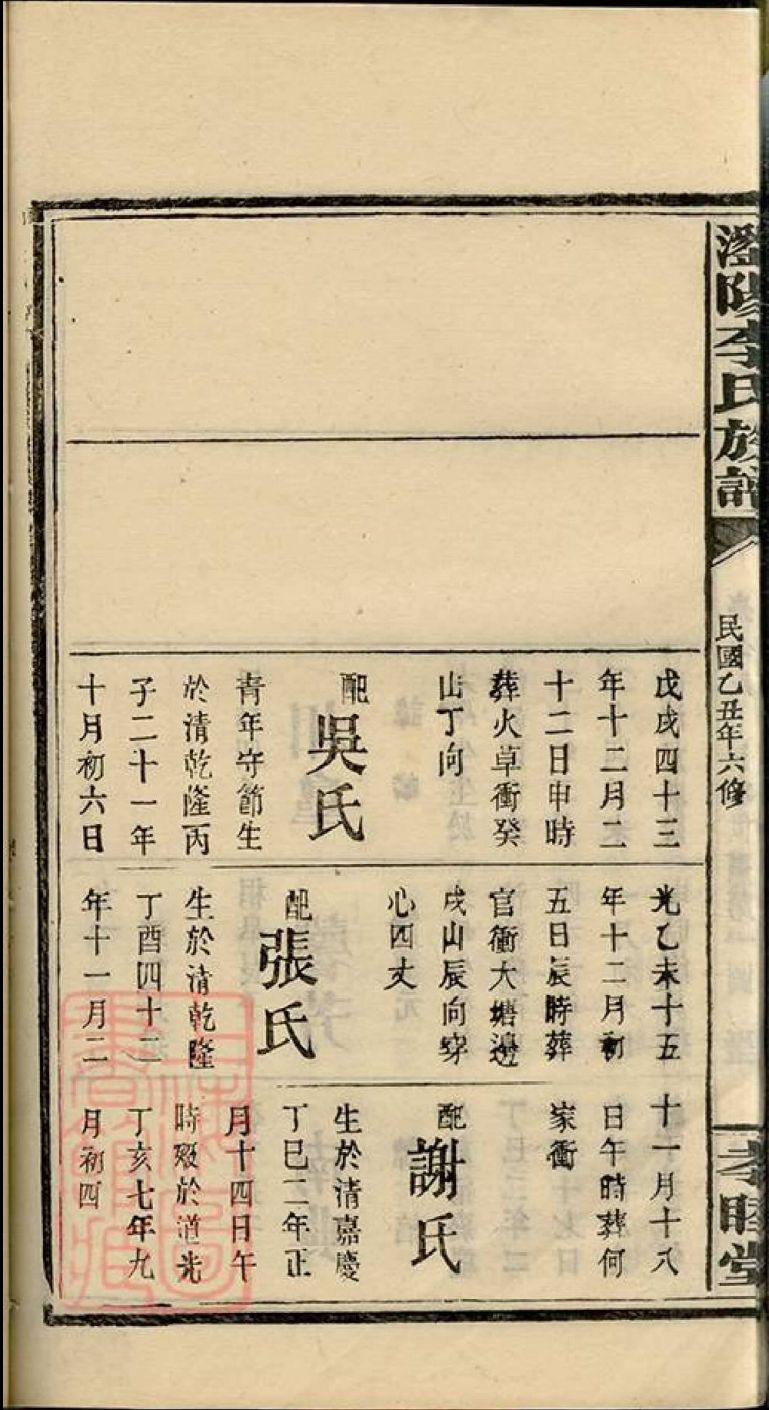 澄陽李氏族譜
民國乙丑年六修
孝睦堂
戊戌四十三
年十二月二
十二日申時
葬火草衝癸
山丁向
配
吳氏
青年守節生
於清乾隆丙
子二十一年
十月初六日
光乙未十五
年十二月初
五日辰時葬
官衝大塘邊
戌山辰向穿
心四丈
配
張氏
生於清乾隆
丁酉四十二
年十一月二
十一月十八
日午時葬何
家衝
配
謝氏
生於清嘉慶
丁巳二年正
月十四日午
時歿於道光
丁亥七年九
月初四
上海圖
書館藏